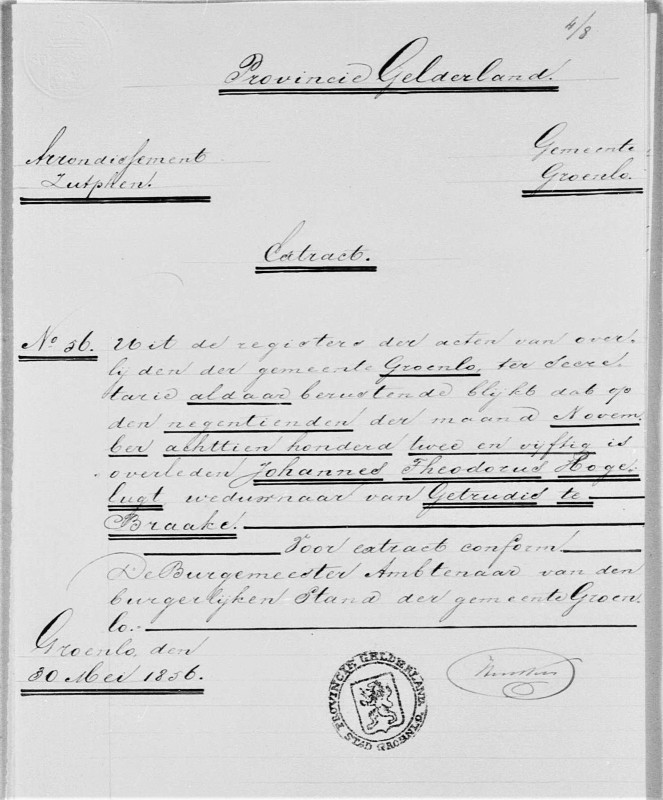 4/8
Provincie Gelderland.
Arrondissement
Zutphen.
Gemeente
Groenlo.
Extract.
No 56. Uit de registers der acten van over-
lijden der gemeente Groenlo, ter Secre-
tarie aldaar berustende blijkt dat op
den negentienden der maand Novem-
ber achttien honderd twee en vijftig is
overleden Johannes Theodorus Hoge-
lugt weduwnaar van Getrudis te
Braake.
Voor extract conform.
De Burgemeester Ambtenaar van den
burgerlijken Stand der gemeente Groen-
lo.
Groenlo, den
30 Mei 1856.
PROVINCIE GELDERLAND.
STAD GROENLO.